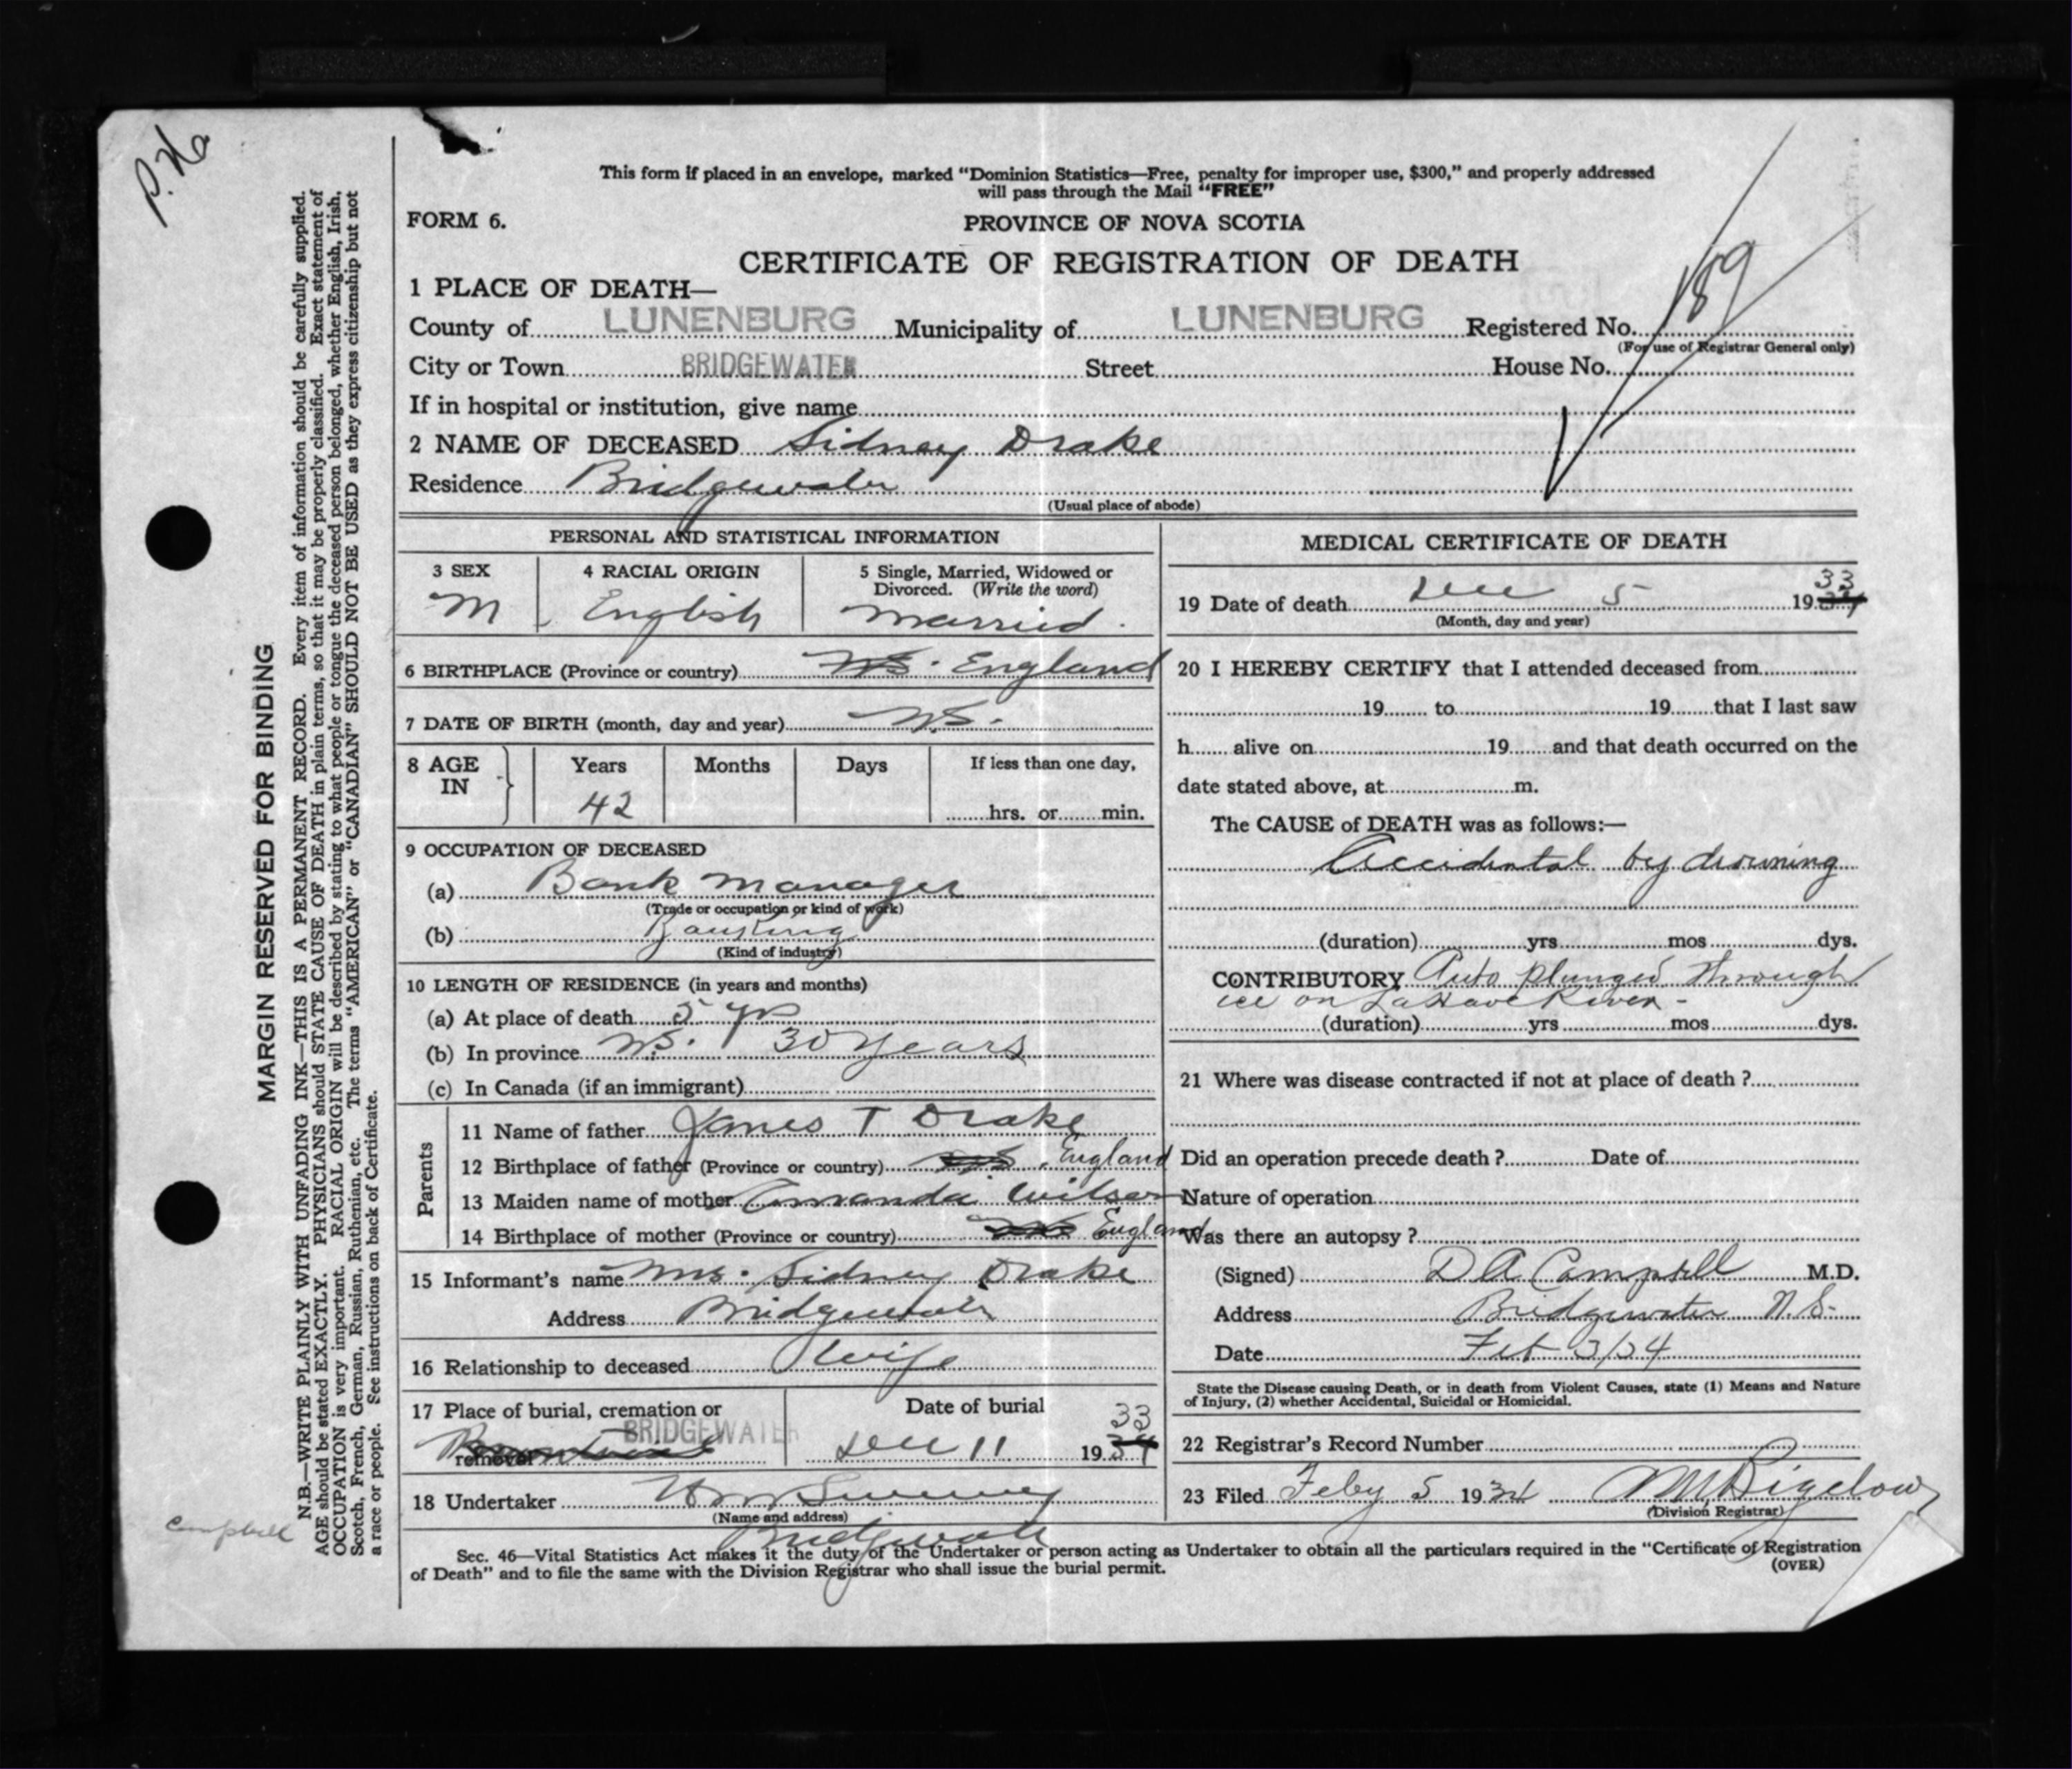 P.Ha
This form if placed in an envelope, marked “Dominion Statistics—Free, penalty for improper use, $300,” and properly addressed
will pass through the Mail “FREE”
FORM 6.
PROVINCE OF NOVA SCOTIA
CERTIFICATE OF REGISTRATION OF DEATH
1 PLACE OF DEATH—
County of LUNENBURG Municipality of LUNENBURG Registered No. 189
(For use of Registrar General only)
City or Town BRIDGEWATER Street House No.
If in hospital or institution, give name
2 NAME OF DECEASED Sidney Drake
Residence Bridgewater
(Usual place of abode)
PERSONAL AND STATISTICAL INFORMATION
3 SEX
M
4 RACIAL ORIGIN
English
5 Single, Married, Widowed or
Divorced. (Write the word)
Married.
6 BIRTHPLACE (Province or country) NS. England
7 DATE OF BIRTH (month, day and year) NS.
8 AGE IN
Years Months Days If less than one day,
42 hrs. or min.
9 OCCUPATION OF DECEASED
(a) Bank Manager
(Trade or occupation or kind of work)
(b) Banking
(Kind of industry)
10 LENGTH OF RESIDENCE (in years and months)
(a) At place of death 5 yrs
(b) In province NS. 30 years
(c) In Canada (if an immigrant)
Parents
11 Name of father James T Drake
12 Birthplace of father (Province or country) NS. England
13 Maiden name of mother Amanda Wilson
14 Birthplace of mother (Province or country) NS England
15 Informant's name Mrs. Sidney Drake
Address Bridgewater
16 Relationship to deceased Wife
17 Place of burial, cremation or
removal BRIDGEWATER
Date of burial
Dec 11 1934 33
18 Undertaker Wm Sweeney
(Name and address)
Bridgewater
MEDICAL CERTIFICATE OF DEATH
19 Date of death Dec 5 1934 33
(Month, day and year)
20 I HEREBY CERTIFY that I attended deceased from
19 to 19 that I last saw
h alive on 19 and that death occurred on the
date stated above, at m.
The CAUSE of DEATH was as follows:—
Accidental by drowning
(duration) yrs mos dys.
CONTRIBUTORY Auto plunged through
ice on LaHave River -
(duration) yrs mos dys.
21 Where was disease contracted if not at place of death ?
Did an operation precede death ? Date of
Nature of operation
Was there an autopsy ?
(Signed) D A Campbell M.D.
Address Bridgewater N.S.
Date Feb 3/34
State the Disease causing Death, or in death from Violent Causes, state (1) Means and Nature
of Injury, (2) whether Accidental, Suicidal or Homicidal.
22 Registrar's Record Number
23 Filed Feby 5 1934 Bigelow
(Division Registrar)
Sec. 46—Vital Statistics Act makes it the duty of the Undertaker or person acting as Undertaker to obtain all the particulars required in the “Certificate of Registration
of Death” and to file the same with the Division Registrar who shall issue the burial permit.
(OVER)
MARGIN RESERVED FOR BINDING
N.B.—WRITE PLAINLY WITH UNFADING INK—THIS IS A PERMANENT RECORD. Every item of information should be carefully supplied.
AGE should be stated EXACTLY. PHYSICIANS should STATE CAUSE OF DEATH in plain terms, so that it may be properly classified. Exact statement of
OCCUPATION is very important. RACIAL ORIGIN will be described by stating to what people or tongue the deceased person belonged, whether English, Irish,
Scotch, French, German, Russian, Ruthenian, etc. The terms “AMERICAN” or “CANADIAN” SHOULD NOT BE USED as they express citizenship but not
a race or people. See instructions on back of Certificate.
Campbell